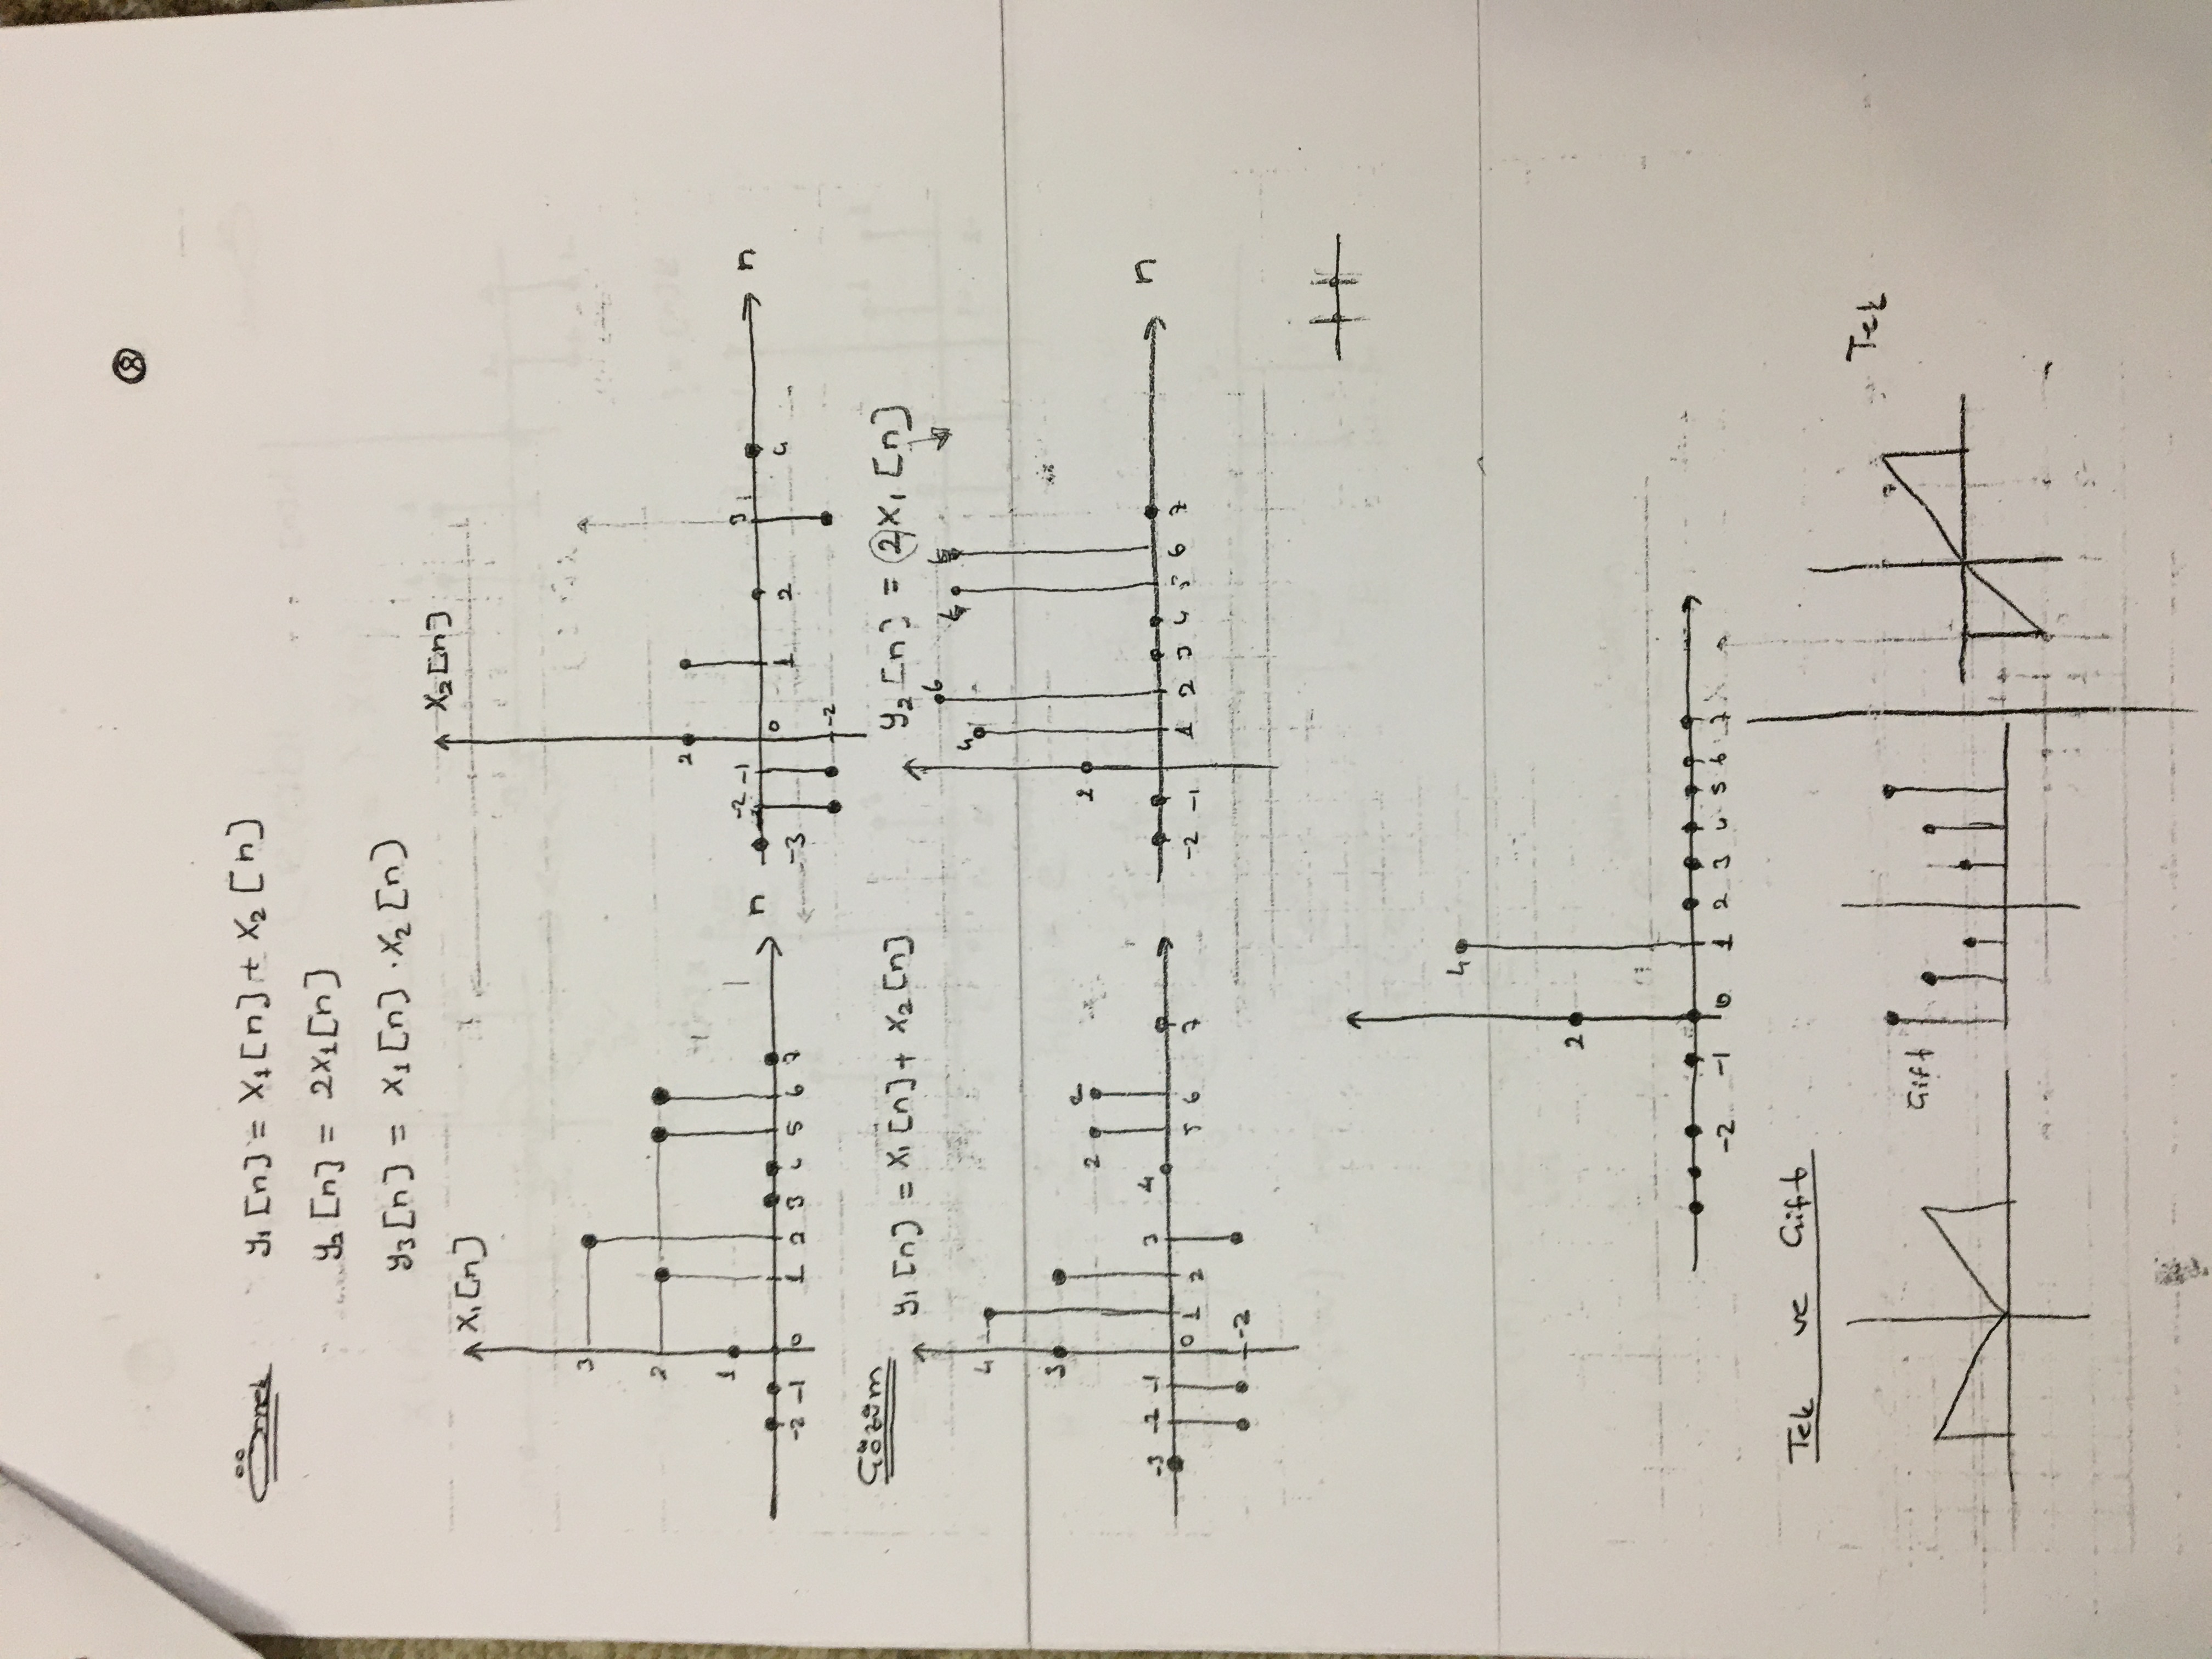 8
Örnek y₁[n] = x₁[n] + x₂[n]
y₂[n] = 2x₁[n]
y₃[n] = x₁[n] · x₂[n]
x₁[n]
3
2
1
-2 -1 0 1 2 3 4 5 6 7
n
x₂[n]
2
-2 -1 3
-3 0 1 2 4
-2
n
Çözüm
y₁[n] = x₁[n] + x₂[n]
4
3
2 2
-3 -2 -1 3 4
0 1 2 5 6 7
-2
y₂[n] = 2x₁[n]
6
4
2
-2 -1 1 2 3 4 5 6 7
n
4
2
-2 -1 0 1 2 3 4 5 6 7
Tek ve Çift
Çift
Tek